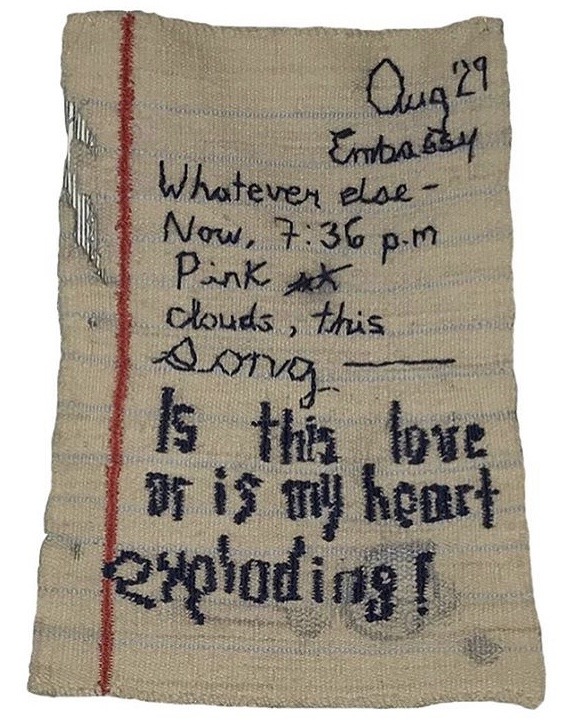 Aug '29
Embassy
Whatever else -
Now, 7:36 p.m
Pink
clouds, this
song —
Is this love
or is my heart
exploding!